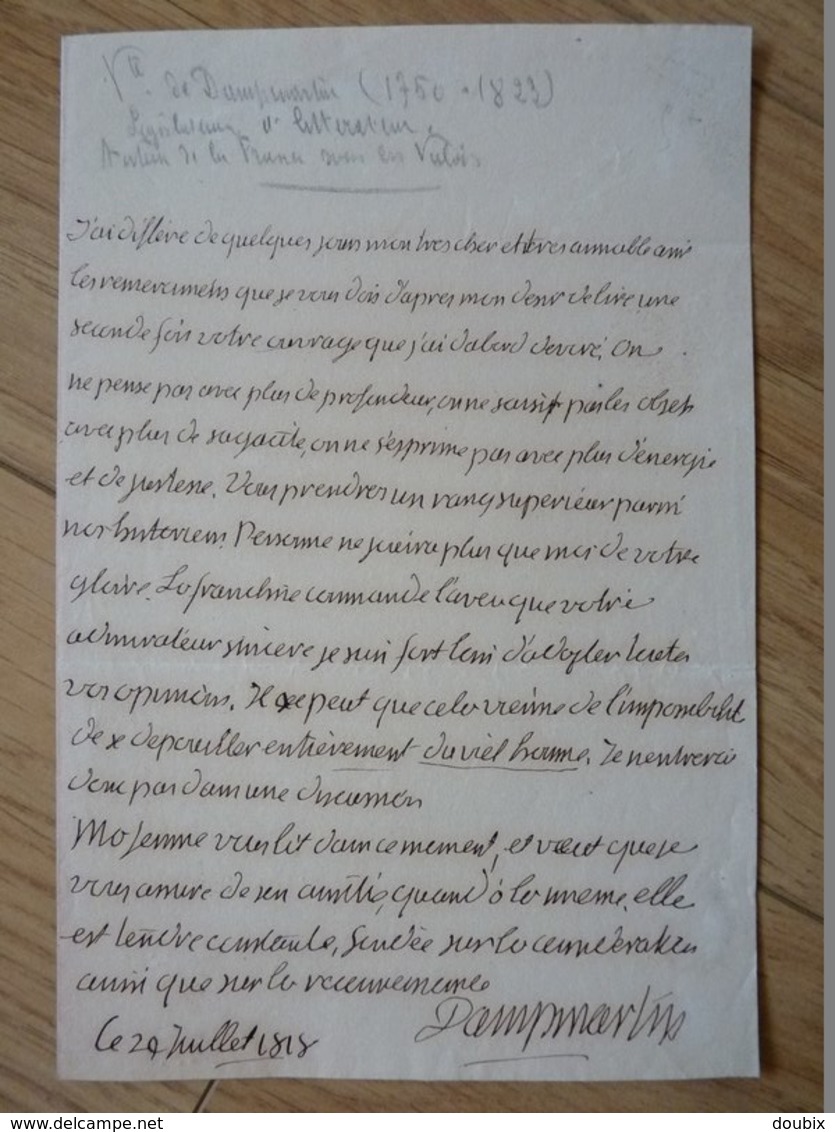 Vte. de Dampmartin (1750 - 1822)
Législateur et littérateur,
de la France sous les Valois
J'ai différé de quelques jours mon tres cher et tres aimable ami
les remercimens que je vous dois d'apres mon desir de lire une
seconde fois votre ouvrage que j'ai d'abord devoré. On
ne pense pas avec plus de profondeur, on ne saisit pas les objets
avec plus de sagacité, on ne s'exprime pas avec plus d'énergie
et de justesse. Vous prendres un rang superieur parmi
nos historiens. Personne ne jouira plus que moi de votre
gloire. La franchise commande l'aveu que votre
admirateur sincere je suis fort loin d'adopter toutes
vos opinions. Il se peut que cela vienne de l'impossibilité
de se depouiller entièrement du viel homme. Je n'entrerai
donc pas dans une discussion
Ma femme vous lit dans ce moment, et veut que je
vous assure de son amitié, quand à la mienne, elle
est tendre constante, fondée sur la consideration
ainsi que sur la reconnoissance
Dampmartin
Ce 29 Juillet 1818
delcampe.net
doubix